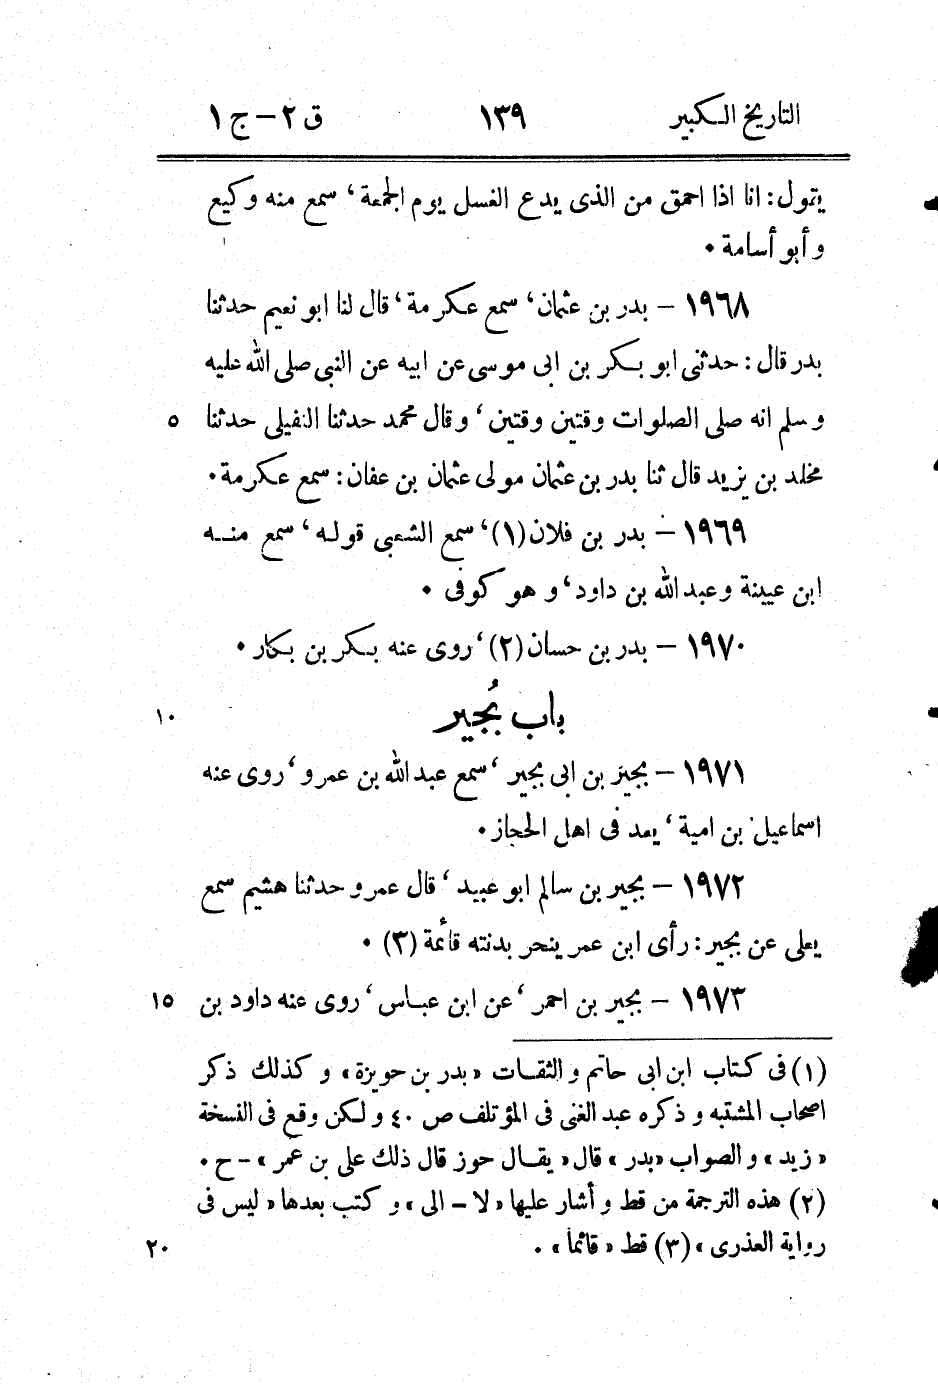 التاريخ الكبير ١٣٩ ق ٢ – ج ١
يقول: انا اذا احمق من الذى يدع الغسل يوم الجمعة، سمع منه وكيع
وأبو أسامة.
١٩٦٨ – بدر بن عثمان، سمع عكرمة، قال لنا ابو نعيم حدثنا
بدر قال: حدثنى ابو بكر بن ابى موسى عن ابيه عن النبى صلى الله عليه
وسلم انه صلى الصلوات وقتين وقتين، وقال محمد حدثنا النفيلى حدثنا ٥
مخلد بن يزيد قال ثنا بدر بن عثمان مولى عثمان بن عفان: سمع عكرمة.
١٩٦٩ – بدر بن فلان (١)، سمع الشعبى قوله، سمع منه
ابن عيينة وعبد الله بن داود، وهو كوفى.
١٩٧٠ – بدر بن حسان (٢)، روى عنه بكر بن بكار.
باب بُجير ١٠
١٩٧١ – بجير بن ابى بجير، سمع عبد الله بن عمرو، روى عنه
اسماعيل بن امية، يعد فى اهل الحجاز.
١٩٧٢ – بجير بن سالم ابو عبيد، قال عمرو حدثنا هشيم سمع
يعلى عن بجير: رأى ابن عمر ينحر بدنته قائمة (٣).
١٩٧٣ – بجير بن احمر، عن ابن عباس، روى عنه داود بن ١٥
(١) فى كتاب ابن ابى حاتم والثقات «بدر بن حويزة» وكذلك ذكر
اصحاب المشتبه وذكره عبد الغنى فى المؤتلف ص ٤٠ ولكن وقع فى النسخة
«زيد» والصواب «بدر» قال «يقال حوز قال ذلك على بن عمر» – ح.
(٢) هذه الترجمة من قط وأشار عليها «لا – الى» وكتب بعدها «ليس فى
رواية العذرى» (٣) قط «قائما». ٢٠